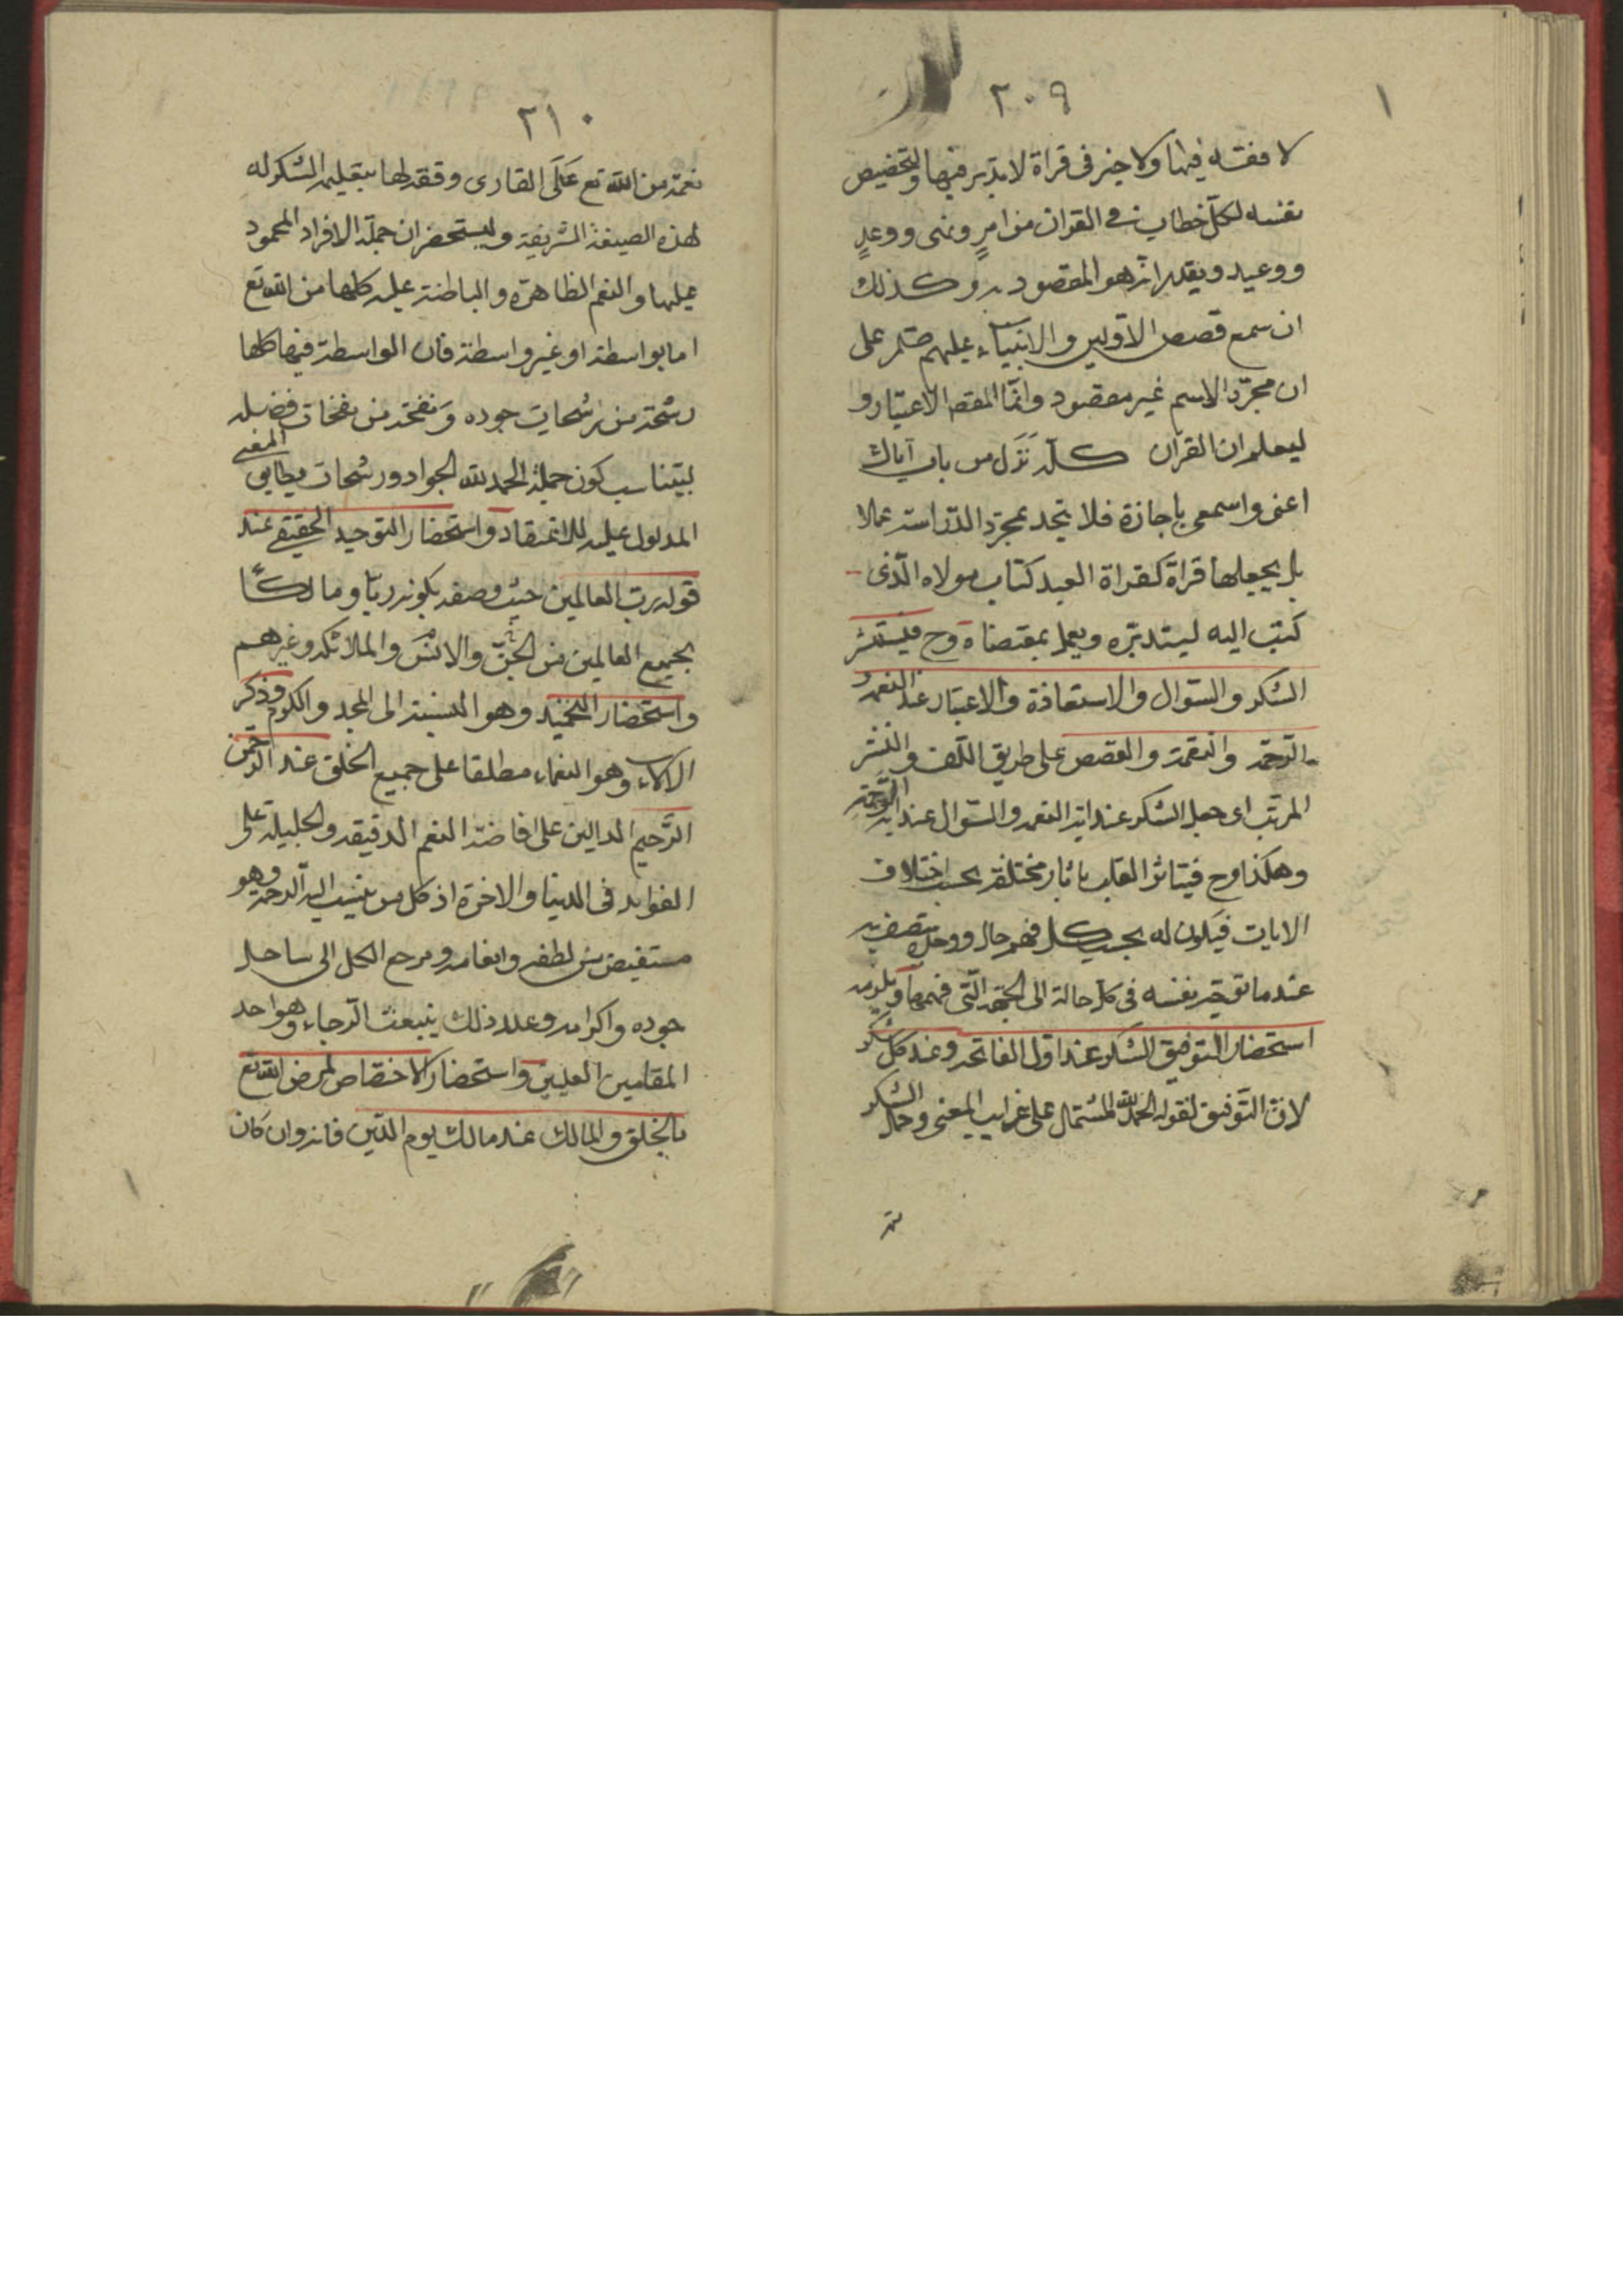 ٢٠٩
لا فقه فيها ولا خير في قراة لا يدبر فيها والتخصيص
نفسه لكل خطاب في القران من امرٍ ونهى ووعدٍ
ووعيد ويقدر انه هو المقصود به وكذلك
ان سمع قصص الاولين والانبياء عليهم علم على
ان مجرّد الاسم غير مقصود وانّما المقصد الاعتبار و
ليعلم ان القران كلّه نَزَل من باب اياك
اعنى واسمعى ياجارة فلا يتخد مجرّد الدّراسة عملا
بل يجعلها قراة كقراة العبد كتاب مولاه الّذى
كتب اليه ليتدبّره ويعمل بمقتضاه وح
الشكر والسّوال والاستعاذة والاعتبار عند النعمة و
الرّحمة والنقمة والقصص على طريق اللّف والنشر
المرتب اى جعل الشكر عند اية النعمة والسّوال عند اية الرّحمة
وهكذا وح فيتاثر القلب باثار مختلفة بحسب اختلاف
الايات فيكون له بحسب كل فهم حال ووجد يتصف به
عند ما توجّه نفسه في كل حالة الى الجهة الّتى فهمها و
استحضار التوفيق للشكر عند اول الفاتحة وعند كل شكر
لانّ التّوفيق لقوله الحمد لله المشتمل على غرايب المعنى وجمل الشكر
نعمة
٢١٠
نعمة من الله تع عَلَى القارى وفقه لها بتعليمه الشكر له
بهذه الصيغة الشريفة وليستحضر ان جملة الافراد المحمود
عليها والنعم الظاهرة والباطنة عليه كلها من الله تع
اما بواسطة او غير واسطة فان الواسطة فيها كلها
رشحة من رشحات جوده وَنفحة من نفحات فضله
ليتناسب كون جملة الحمد لله الجواد ورشحات يطابق المعنى
المدلول عليه للاعتقاد واستحضار التوحيد الحقيقى عند
قوله رب العالمين حيث وصفه بكونه ربّا ومالكًا
لجميع العالمين من الجنّ والانس والملائكة وغيرهم
واستحضار التمجيد وهو النسبة الى المجد والكرم وذكر
الالاء وهو النعماء مطلقا على جميع الخلق عند الرّحمن
الرَّحيم الدالين على افاضة النعم الدقيقة والجليلة على
القوابل في الدنيا والاخرة اذ كل من ينسب اليه الرحمة وهو
مستفيض من لطفه وانعامه ومرجع الكل الى ساحل
جوده واكرامه وعند ذلك ينبعث الرجاء وهو احد
المقامين العليين واستحضار الاختصاص لمرض الله تع
بالخلق والمالك عند مالك يوم الدّين فانه وان كَان